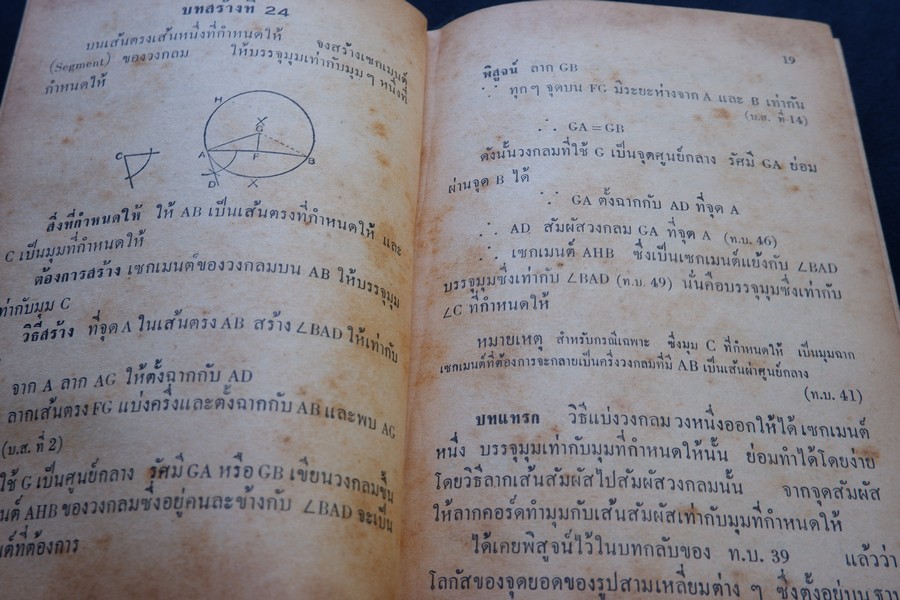 บทสร้างที่ 24
บนเส้นตรงเส้นหนึ่งที่กำหนดให้ จงสร้างเซกเมนต์
(Segment) ของวงกลม ให้บรรจุมุมเท่ากับมุมๆ หนึ่งที่
กำหนดให้
H
G
C
A
F
B
D
สิ่งที่กำหนดให้ ให้ AB เป็นเส้นตรงที่กำหนดให้ และ
C เป็นมุมที่กำหนดให้
ต้องการสร้าง เซกเมนต์ของวงกลมบน AB ให้บรรจุมุม
เท่ากับมุม C
วิธีสร้าง ที่จุด A ในเส้นตรง AB สร้าง ∠BAD ให้เท่ากับ
จาก A ลาก AG ให้ตั้งฉากกับ AD
ลากเส้นตรง FG แบ่งครึ่งและตั้งฉากกับ AB และพบ AG
(บ.ส. ที่ 2)
ใช้ G เป็นศูนย์กลาง รัศมี GA หรือ GB เขียนวงกลมขึ้น
นต์ AHB ของวงกลมซึ่งอยู่คนละข้างกับ ∠BAD จะเป็น
นต์ที่ต้องการ
19
พิสูจน์ ลาก GB
∵ ทุกๆ จุดบน FG มีระยะห่างจาก A และ B เท่ากัน
(บ.ส. ที่ 14)
∴ GA = GB
ดังนั้นวงกลมที่ใช้ G เป็นจุดศูนย์กลาง รัศมี GA ย่อม
ผ่านจุด B ได้
∵ GA ตั้งฉากกับ AD ที่จุด A
∴ AD สัมผัสวงกลม GA ที่จุด A (ท.บ. 46)
∴ เซกเมนต์ AHB ซึ่งเป็นเซกเมนต์แย้งกับ ∠BAD
บรรจุมุมซึ่งเท่ากับ ∠BAD (ท.บ. 49) นั่นคือบรรจุมุมซึ่งเท่ากับ
∠C ที่กำหนดให้
หมายเหตุ สำหรับกรณีเฉพาะ ซึ่งมุม C ที่กำหนดให้ เป็นมุมฉาก
เซกเมนต์ที่ต้องการจะกลายเป็นครึ่งวงกลมที่มี AB เป็นเส้นผ่าศูนย์กลาง
(ท.บ. 41)
บทแทรก วิธีแบ่งวงกลมวงหนึ่งออกให้ได้เซกเมนต์
หนึ่ง บรรจุมุมเท่ากับมุมที่กำหนดให้นั้น ย่อมทำได้โดยง่าย
โดยวิธีลากเส้นสัมผัสไปสัมผัสวงกลมนั้น จากจุดสัมผัส
ให้ลากคอร์ดทำมุมกับเส้นสัมผัสเท่ากับมุมที่กำหนดให้
ได้เคยพิสูจน์ไว้ในบทกลับของ ท.บ. 39 แล้วว่า
โลกัสของจุดยอดของรูปสามเหลี่ยมต่าง ๆ ซึ่งตั้งอยู่บนฐาน